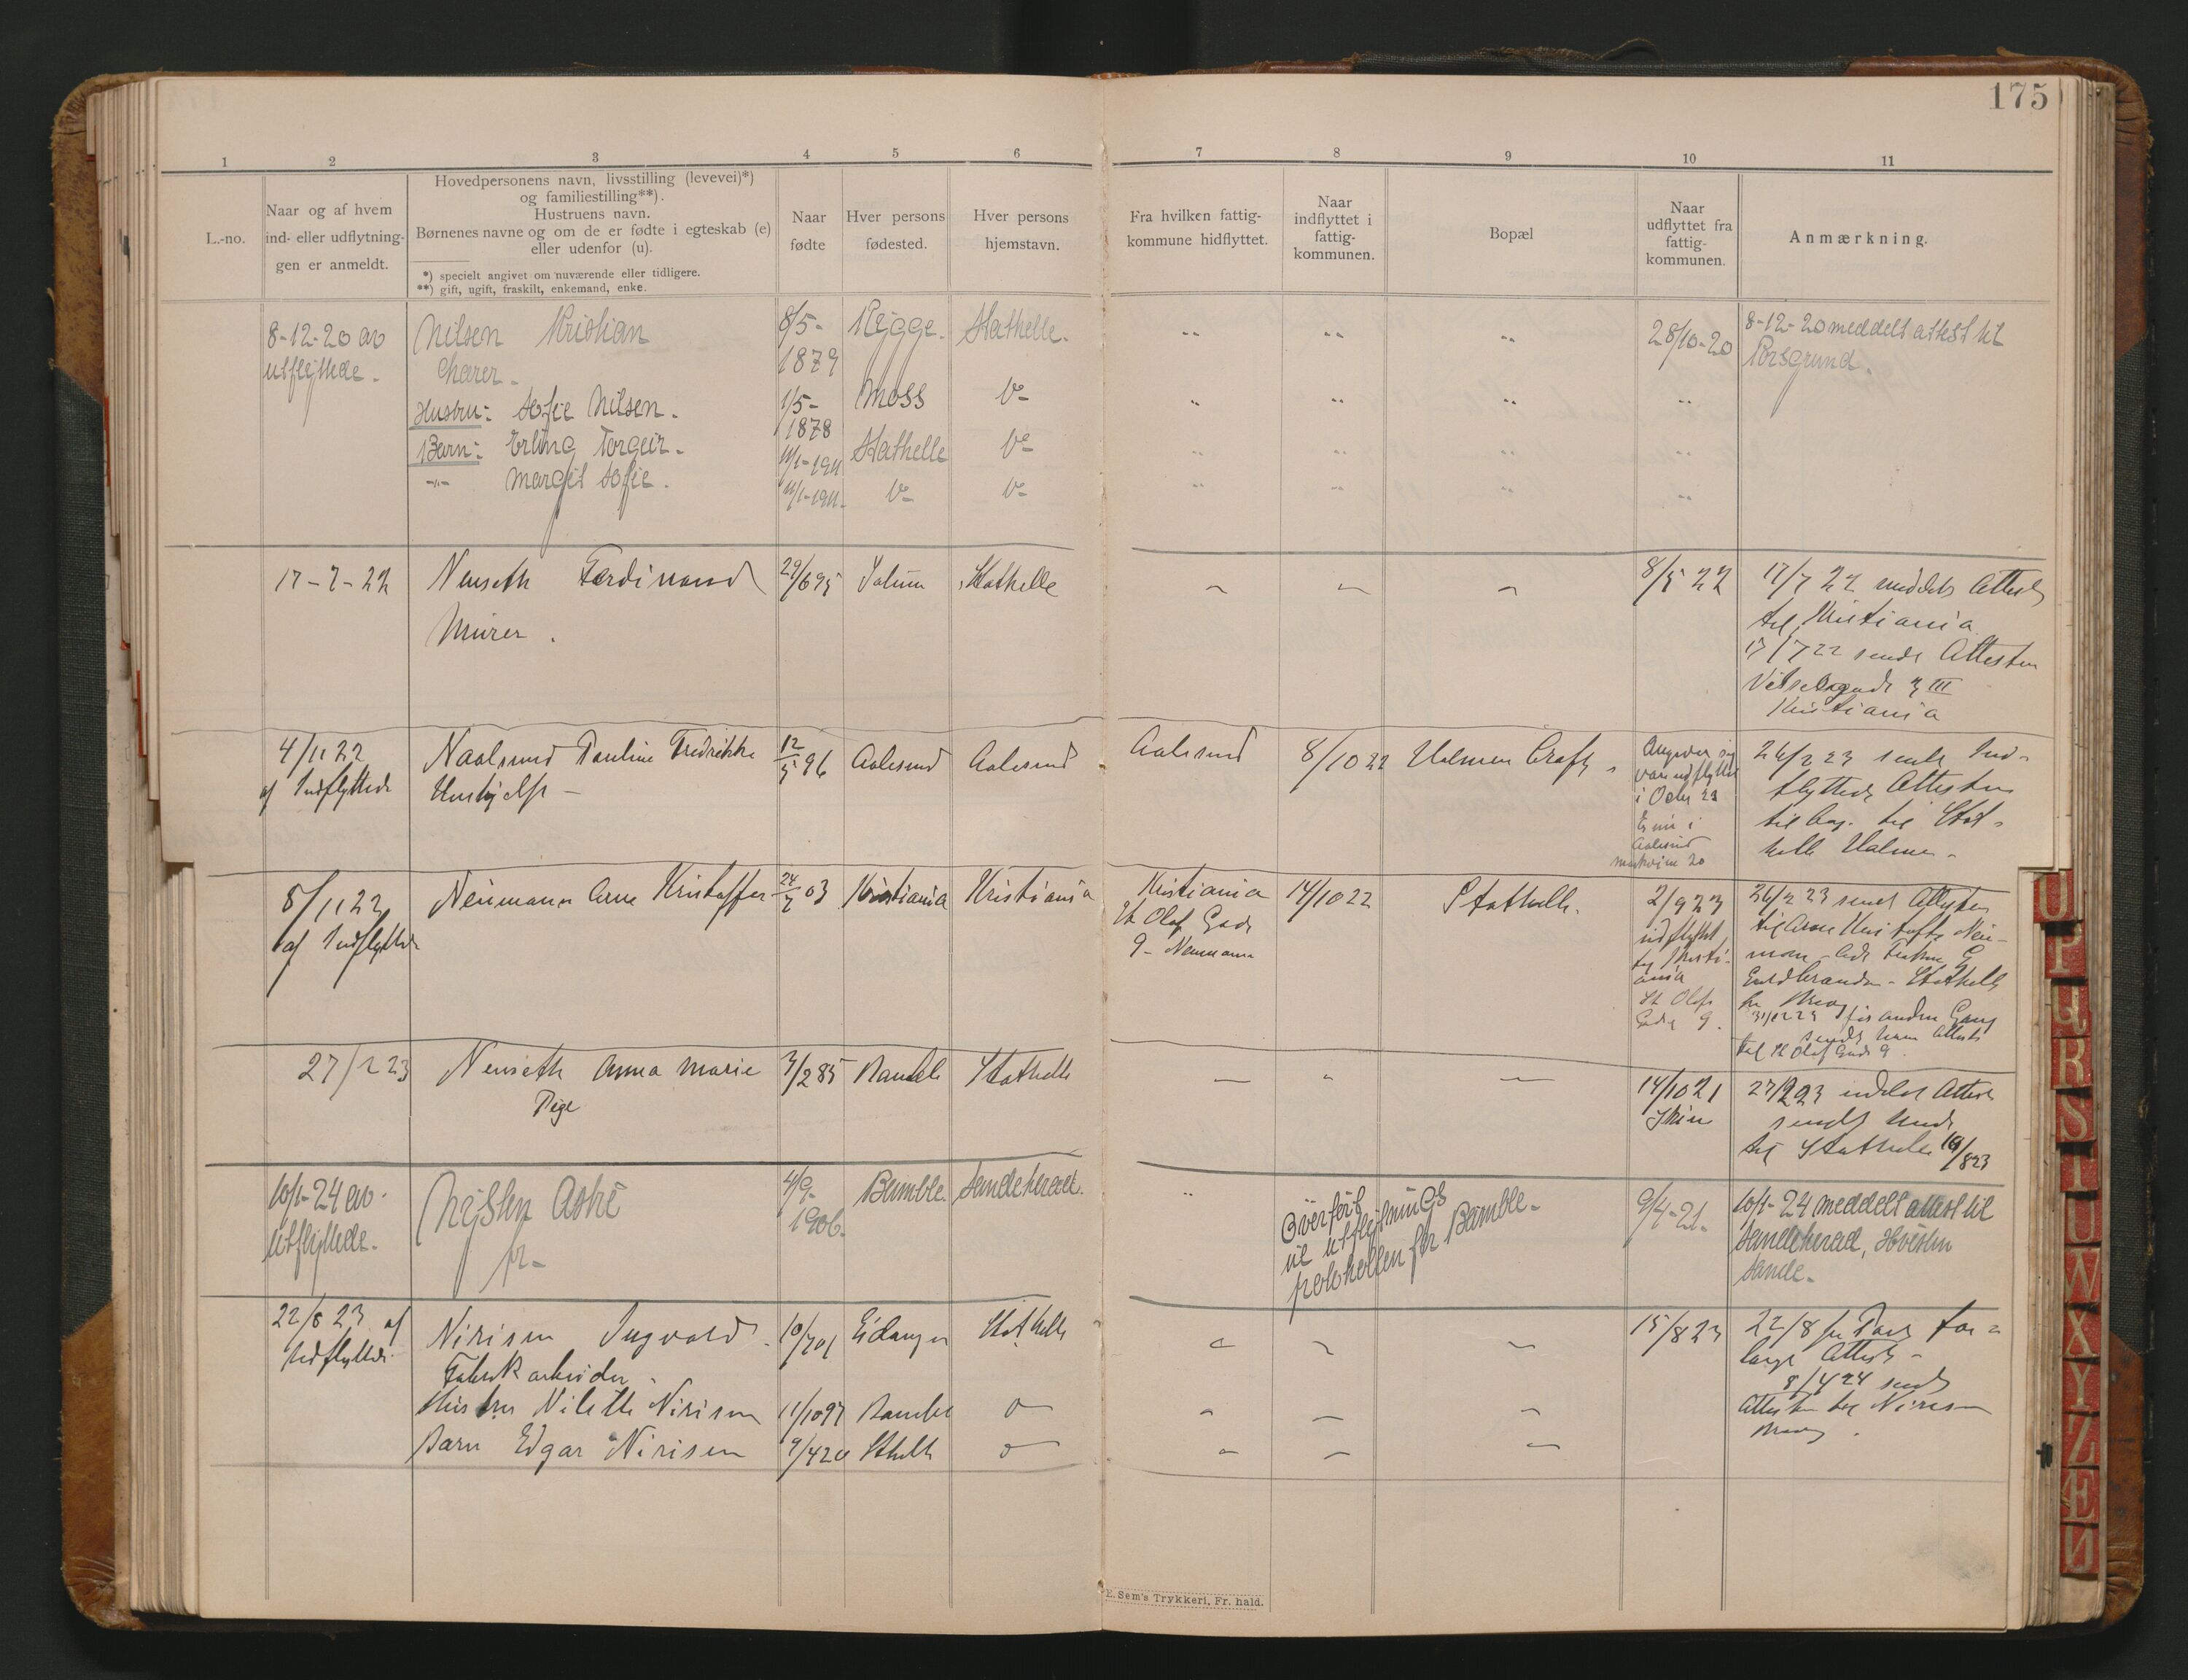 175
1 2 3 4 5 6 7 8 9 10 11
L.-no.
Naar og af hvem
ind- eller udflytnin-
gen er anmeldt.
Hovedpersonens navn, livsstilling (levevei)*)
og familiestilling**).
Hustruens navn.
Børnenes navne og om de er fødte i egteskab (e)
eller udenfor (u).
*) specielt angivet om nuværende eller tidligere.
**) gift, ugift, fraskilt, enkemand, enke.
Naar
fødte
Hver persons
fødested.
Hver persons
hjemstavn.
Fra hvilken fattig-
kommune hidflyttet.
Naar
indflyttet i
fattig-
kommunen.
Bopæl
Naar
udflyttet fra
fattig-
kommunen.
Anmærkning.
8-12-20 av
utflyttede.
Nilsen Kristian
Hustru: Sofie Nilsen.
Barn: Erling Torgeir.
-"- Margit Sofie.
8/5-
1879
1/5-
1878
11/1-1911
11/1-1911.
Rygge.
Moss
Stathelle
Do
Stathelle.
Do
Do
Do
28/10-20
8-12-20 meddelt attest til
Porsgrund.
17-7-22
Nenseth Ferdinand
Murer.
29/6 95
Solum
Stathelle
8/5 22
17/7 22 meddelt Attest
til Kristiania
17/7 22 sendt Attesten
Kristiania
4/11 22
af Indflyttede
Naalsund Pauline Fredrikke
Hushjelp -
12/5 96
Aalesund
Aalesund
Aalesund
8/10 22
Halmen
Angiver sig
var udflyttet
i Octr 22
Er nu i
Aalesund
26/2 23 sendt Ind-
flyttede Attesten
til Stat-
helle Halmen -
8/11 22
af Indflyttede
Neumann Arne Kristoffer
24/7 03
Kristiania
Kristiania
Kristiania
St Olafs Gade
9 - Neumann
14/10 22
Stathelle.
2/9 23
udflyttet
til Kristi-
ania
St Olafs
Gade 9.
26/2 23 sendt Attesten
til Arne Kristoffer Neu-
mann
Guldbrandsen - Stathelle
31/12 23 for anden Gang
sendt ham Attest
til St Olafs Gade 9
27/2 23
Nenseth Anna Marie
Pige
3/2 85
Bamble
Stathelle
14/10 21
Skien
27/2 23 meldt Attest
sendt hende
til Stathelle 10/8 23
10/1-24 av
utflyttede.
Nysten Aste
fr-
4/9-
1906.
Bamble.
Sandeherad.
Overført
til utflytnings
protokollen for Bamble-
9/4-21.
10/1-24 meddelt attest til
Sandeherad,
Sande.
22/8 23 af
Udflyttede
Nirisen Ingvald
Fabrikarbeider
Hustru Nilette Nirisen
Barn Edgar Nirisen
10/7 01
11/10 97
9/4 20
Eidanger
Bamble
Sthelle
Stathelle
15/8 23
22/8 pr Post for-
langt Attest -
8/4 24 sendt
Attesten til Nirisen
E. Sem's Trykkeri, Fr. hald.
U P R S T U W X Y Z Æ